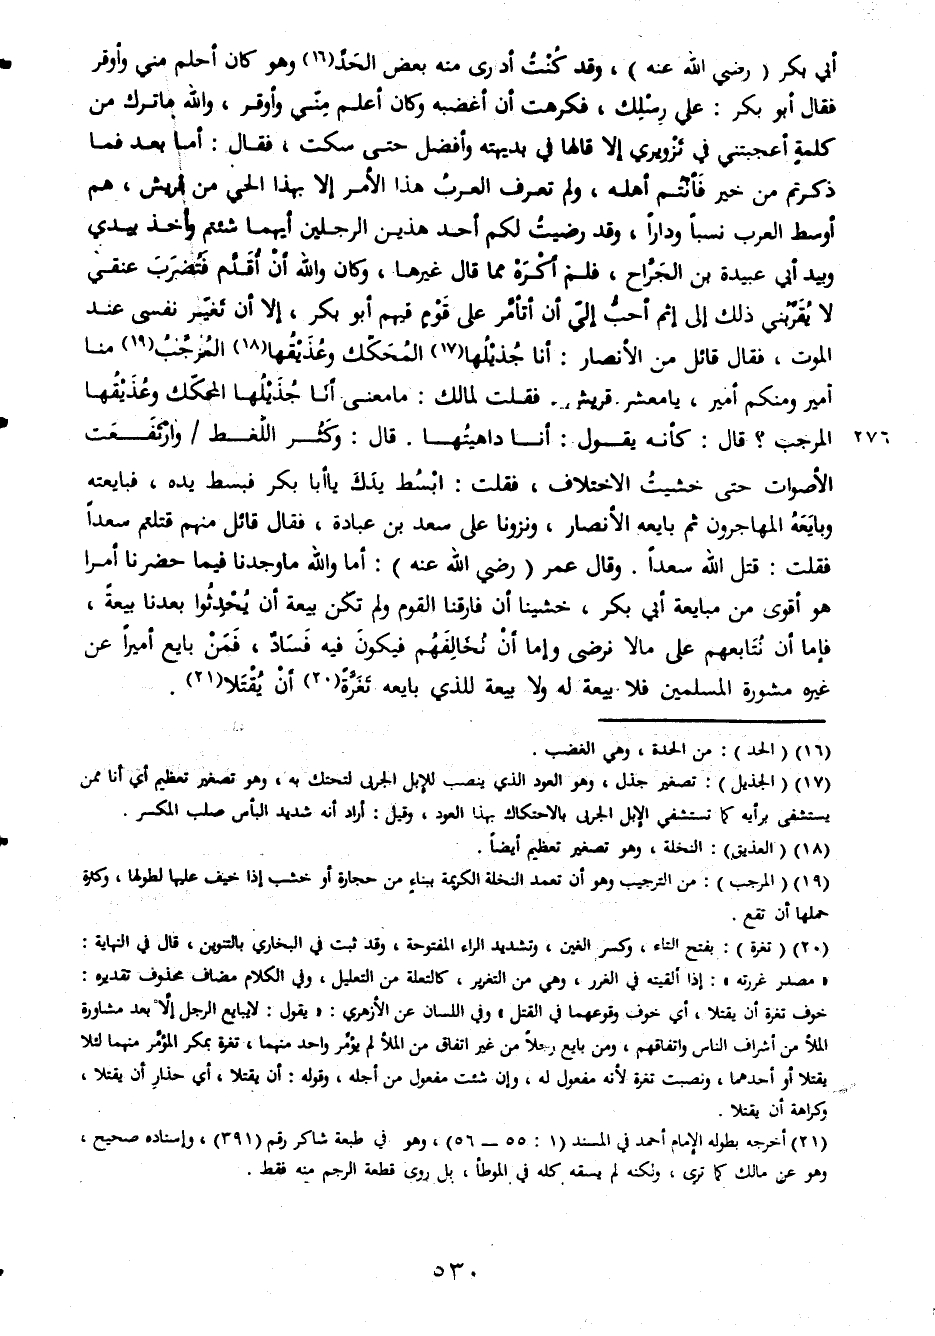 أبي بكر ( رضي الله عنه ) ، وقد كُنْتُ أدرى منه بعض الحَدِّ(١٦) وهو كان أحلم مني وأوقر
فقال أبو بكر : على رِسْلِك ، فكرهت أن أغضبه وكان أعلم مِنّي وأوقر ، والله ماترك من
كلمةٍ أعجبتني في تَزْويري إلا قالها في بديهته وأفضل حتى سكت ، فقال : أما بعد فما
ذكرتم من خير فَأَنْتُم أهله ، ولم تعرف العربُ هذا الأمر إلا بهذا الحي من قريش ، هم
أوسط العرب نسباً وداراً ، وقد رضيتُ لكم أحد هذين الرجلين أيهما شئتم وأخذ بيدي
وبيد أبي عبيدة بن الجَرَّاح ، فلم أَكْرَهْ مما قال غيرها ، وكان والله أنْ أُقَدَّم فَتُضرَبَ عنقي
لا يُقَرّبُني ذلك إلى إثم أحبُّ إليّ أن أتأمَّر على قَوْمٍ فيهم أبو بكر ، إلا أن تَغَيَّر نفسى عند
الموت ، فقال قائل من الأنصار : أنا جُذَيْلُها(١٧) المُحَكّك وعُذَيْقُها(١٨) المُرَجَّبُ(١٩) منا
أمير ومنكم أمير ، يامعشر قريش . فقلت لمالك : مامعنى أنَا جُذَيْلُها المحكّك وعُذَيْقُها
٢٧٦ المرجب ؟ قال : كأنه يقول : أنا داهيتُها . قال : وَكَثُر اللَّغط / وَارْتَفَعَت
الأصوات حتى خشيتُ الاختلاف ، فقلت : ابْسُط يدَكَ ياأبا بكر فبسط يده ، فبايعته
وبايَعَهُ المهاجرون ثم بايعه الأنصار ، ونزونا على سعد بن عبادة ، فقال قائل منهم قتلتم سعداً
فقلت : قتل الله سعداً . وقال عمر ( رضي الله عنه ) : أما والله ماوجدنا فيما حضرنا أمرا
هو أقوى من مبايعة أبي بكر ، خشينا أن فارقنا القوم ولم تكن بيعة أن يُحْدِثُوا بعدنا بيعةً ،
فإما أن نُتَابعهم على مالا نرضى وإما أنْ نُخَالِفَهُم فيكونَ فيه فَسَادٌ ، فَمَنْ بايع أميراً عن
غيره مشورة المسلمين فلا بيعة له ولا بيعة للذي بايعه تَغَرَّةً(٢٠) أنْ يُقْتَلا(٢١) .
(١٦) ( الحد ) : من الحدة ، وهي الغضب .
(١٧) ( الجذيل ) : تصغير جذل ، وهو العود الذي ينصب للإبل الجربى لتحتك به ، وهو تصغير تعظيم أي أنا ممن
يستشفى برأيه كما تستشفي الإبل الجربى بالاحتكاك بهذا العود ، وقيل : أراد أنه شديد البأس صلب المكسر .
(١٨) ( العذيق ) : النخلة ، وهو تصغير تعظيم أيضاً .
(١٩) ( المرجب ) : من الترجيب وهو أن تعمد النخلة الكريمة ببناء من حجارة أو خشب إذا خيف عليها لطولها ، وكثرة
حملها أن تقع .
(٢٠) ( تغرة ) : بفتح التاء ، وكسر الغين ، وتشديد الراء المفتوحة ، وقد ثبت في البخاري بالتنوين ، قال في النهاية :
« مصدر غررته » : إذا ألقيته في الغرر ، وهي من التغرير ، كالتعلة من التعليل ، وفي الكلام مضاف محذوف تقديره :
خوف تغرة أن يقتلا ، أي خوف وقوعهما في القتل » وفي اللسان عن الأزهري : « يقول : لايبايع الرجل إلّا بعد مشاورة
الملأ من أشراف الناس واتفاقهم ، ومن بايع رجلاً من غير اتفاق من الملأ لم يؤمر واحد منهما ، تغرة بمكر المؤمَّر منهما لئلا
يقتلا أو أحدهما ، ونصبت تغرة لأنه مفعول له ، وإن شئت مفعول من أجله ، وقوله : أن يقتلا ، أي حذار أن يقتلا ،
وكراهة أن يقتلا .
(٢١) أخرجه بطوله الإمام أحمد في المسند (١ : ٥٥ ــ ٥٦) ، وهو في طبعة شاكر رقم (٣٩١) ، وإسناده صحيح ،
وهو عن مالك كما ترى ، ولكنه لم يسقه كله في الموطأ ، بل روى قطعة الرجم منه فقط .
٥٣٠